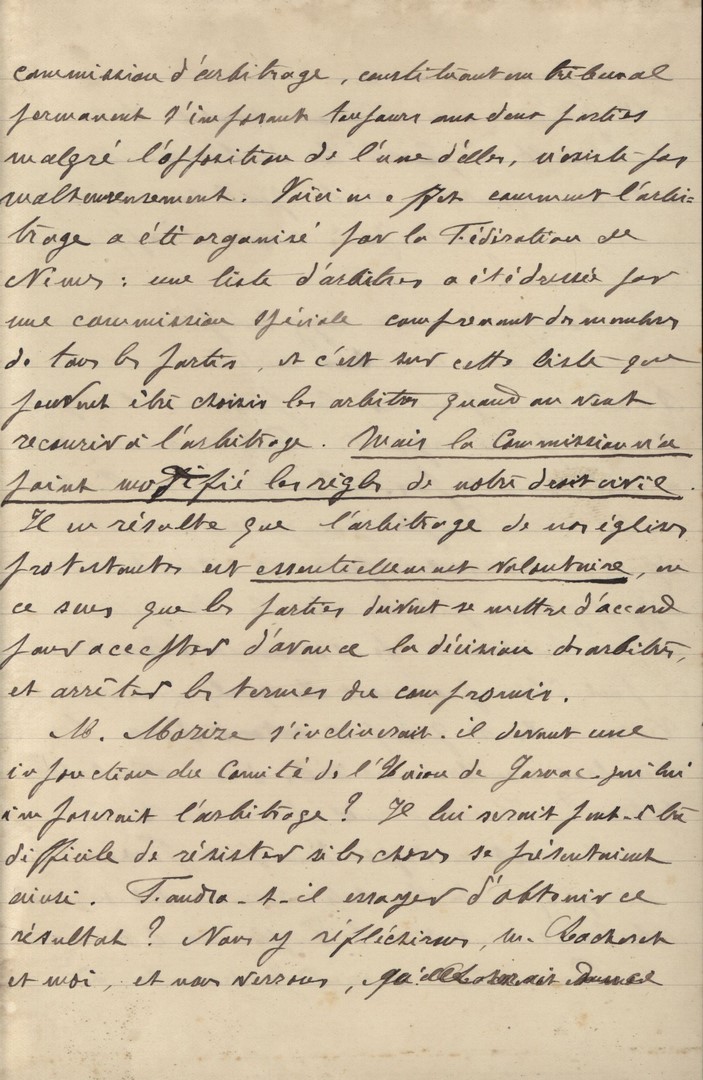 commission d'arbitrage, constituant un tribunal
permanent s'imposant toujours aux deux parties
malgré l'opposition de l'une d'elles, n'existe pas
malheureusement. Voici en effet comment l'arbi=
trage a été organisé par la Fédération de
Nîmes : une liste d'arbitres a été dressée par
une commission spéciale comprenant des membres
de tous les partis, et c'est sur cette liste que
peuvent être choisis les arbitres quand on veut
recourir à l'arbitrage. Mais la Commission n'a
point modifié les règles de notre droit civil.
Il en résulte que l'arbitrage de nos églises
protestantes est essentiellement volontaire, en
ce sens que les parties doivent se mettre d'accord
pour accepter d'avance la décision des arbitres,
et arrêter les termes du compromis.
M. Morize s'inclinerait-il devant une
injonction du Comité de l'Union de Jarnac qui lui
imposerait l'arbitrage ? Il lui serait peut-être
difficile de résister si les choses se présentaient
ainsi. Faudra-t-il essayer d'obtenir ce
résultat ? Nous y réfléchirons, M.
et moi, et nous verrons,